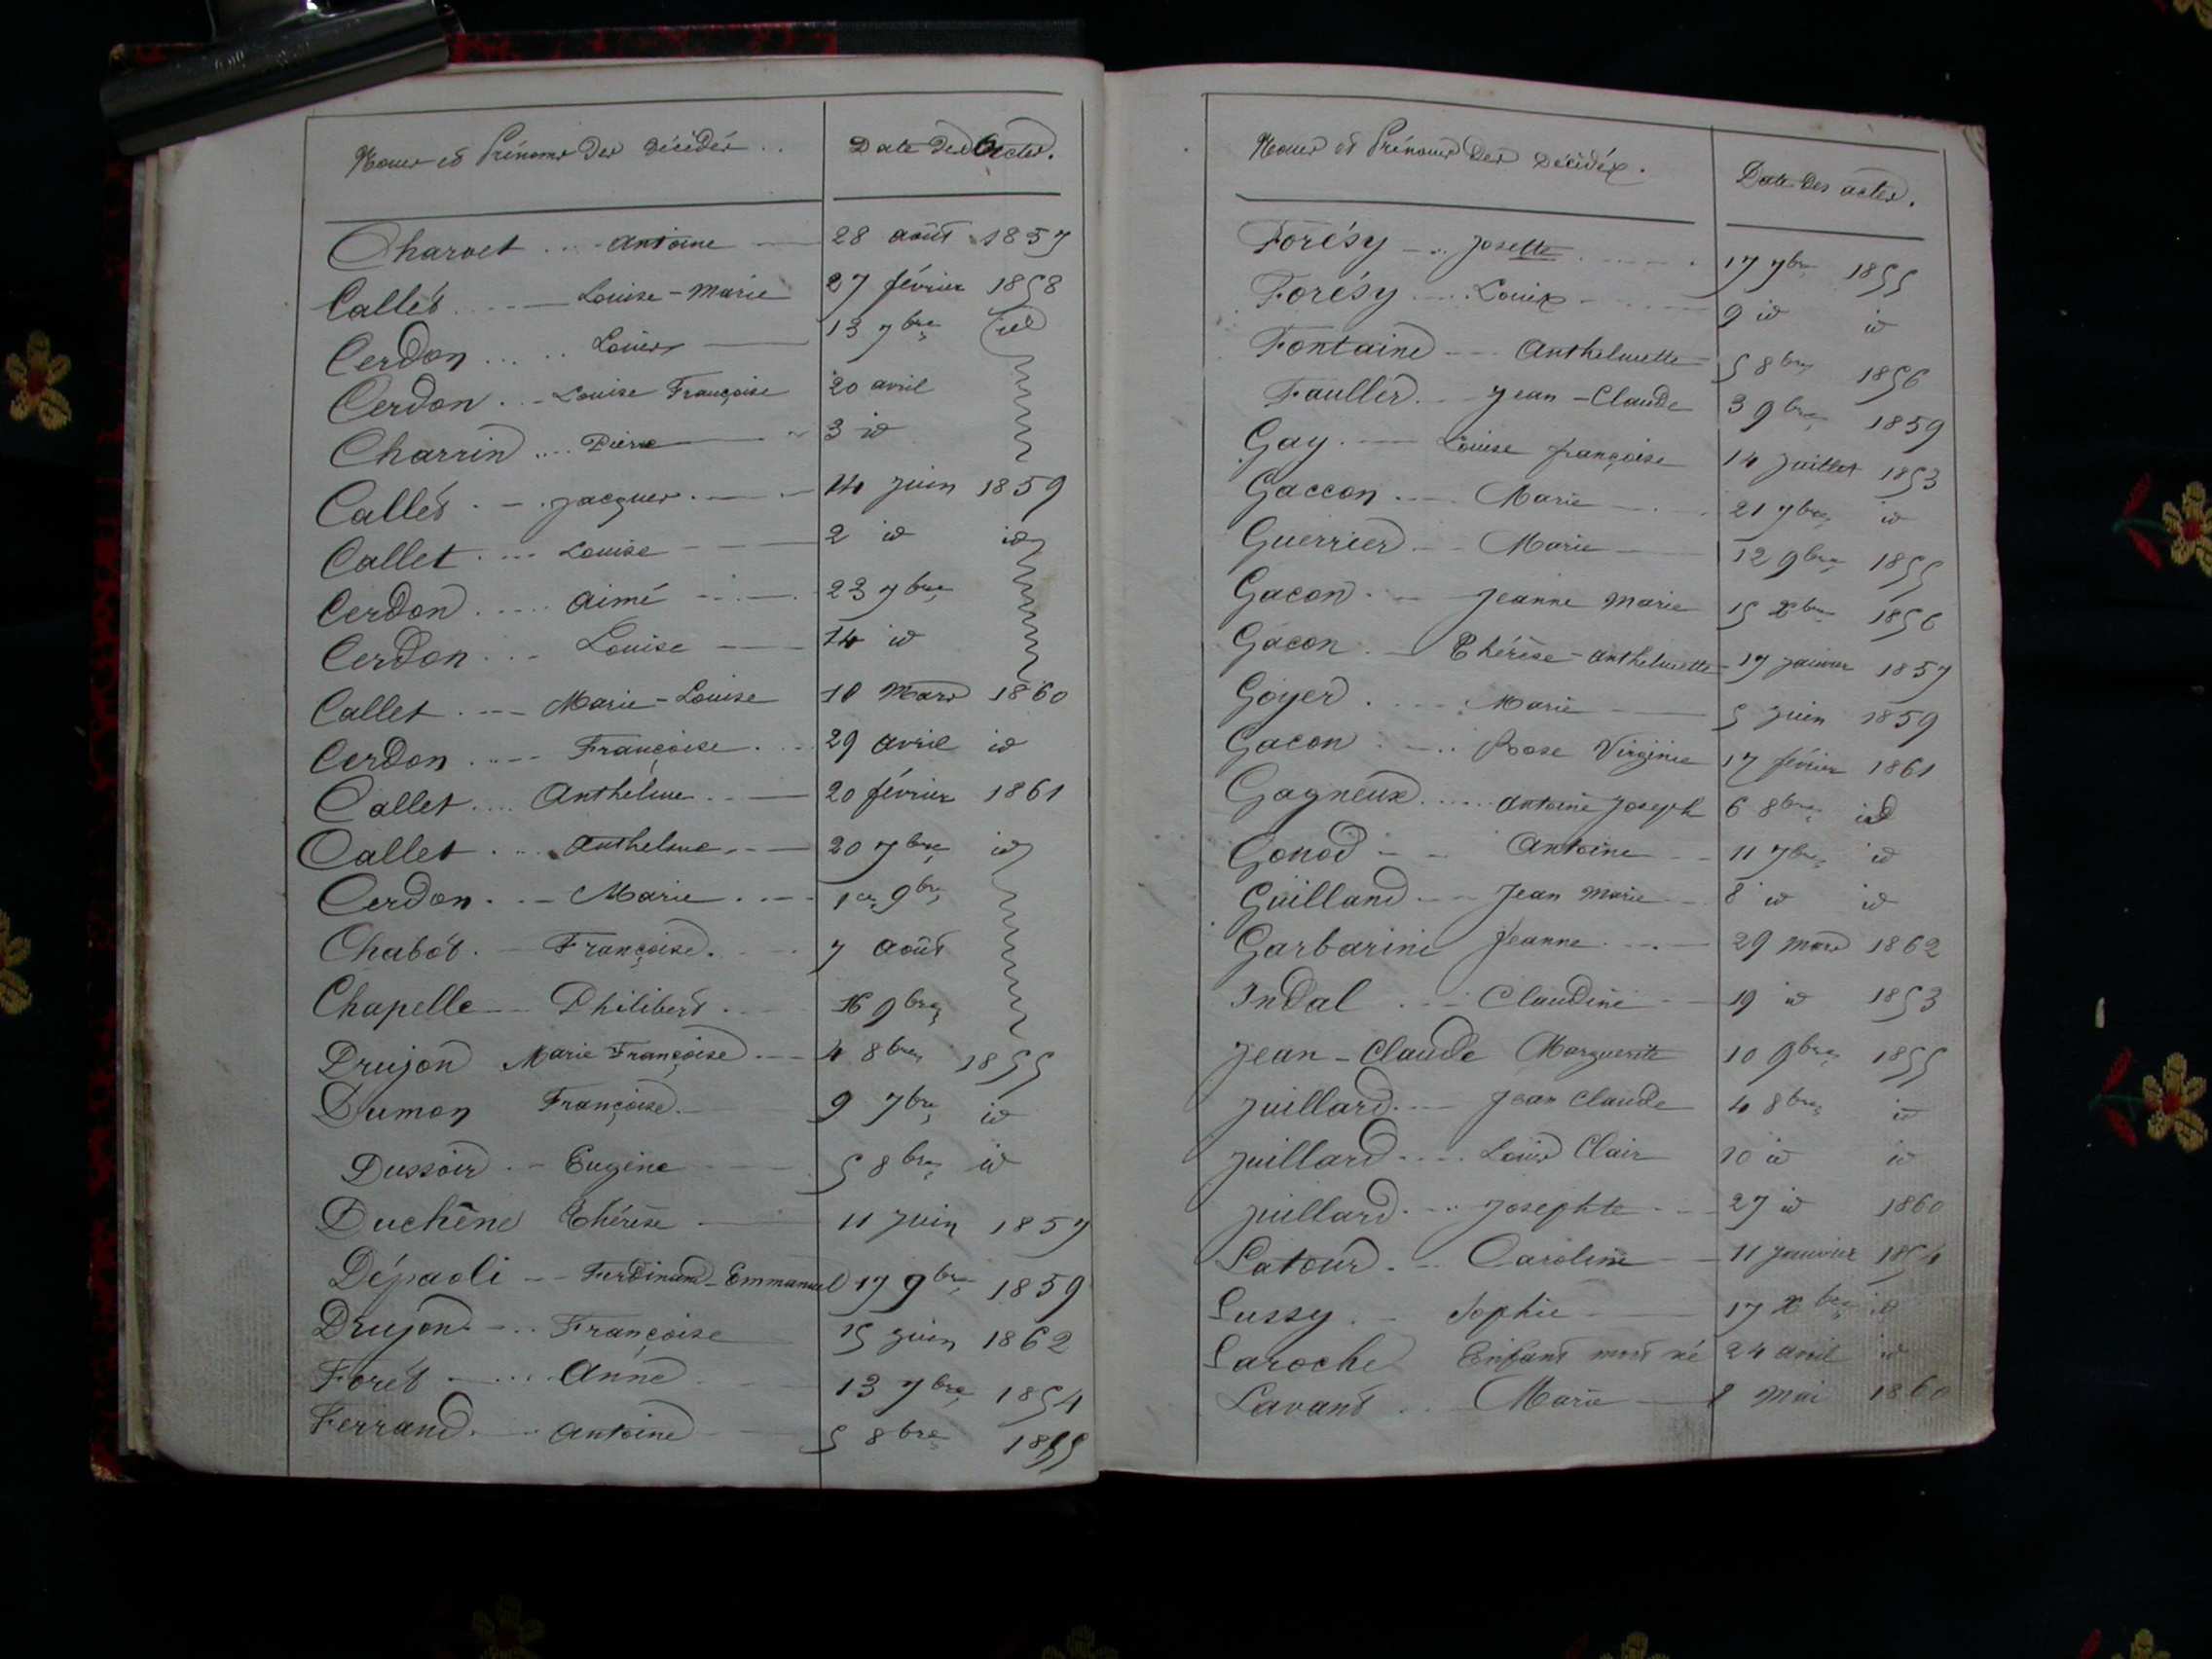 Noms et Prénoms des décédés.. Date des Actes.
Charvet .... Antoine 28 août 1857
Callet .... Louise-Marie 27 février 1858
Cerdon ..... Louis 13 7bre id
Cerdon .. Louise Françoise 20 avril
Charrin .... Pierre 3 id
Callet .. Jacques 14 juin 1859
Callet .... Louise 2 id id
Cerdon ..... aimé 23 7bre
Cerdon ... Louise 14 id
Callet ... Marie-Louise 10 Mars 1860
Cerdon .... Françoise 29 avril id
Callet .... Anthelme 20 février 1861
Callet .... Anthelme 20 7bre id
Cerdon .. Marie 1er 9bre
Chabot . Françoise 7 août
Chapelle Philibert 16 9bre
Drujon Marie Françoise 4 8bre 1855
Dumon Françoise 9 7bre id
Dussoir . Eugène 5 8bre id
Duchêne Thérèse 11 juin 1857
Dépaoli -- Ferdinand-Emmanuel 17 9bre 1859
Drujon ... Françoise 15 juin 1862
Forét .... Anne 13 7bre 1854
Ferrand ... Antoine 5 8bre 1855
Noms et Prénoms des décédés. Date des actes.
Forésy ... Josette 17 7bre 1855
Forésy .... Louis 9 id id
Fontaine --- Anthelmette 5 8bre 1856
Faullet ... Jean-Claude 3 9bre 1859
Gay . Louise françoise 14 juillet 1853
Gaccon ... Marie 21 7bre id
Guerrier ... Marie 12 9bre 1855
Gacon ... Jeanne Marie 15 Xbre 1856
Gacon .. Thérèse-anthelmette 17 janvier 1857
Goyer .... Marie 5 juin 1859
Gacon .... Rose Virginie 17 février 1861
Gagneux ..... Antoine Joseph 6 8bre id
Gonod - - Antoine 11 7bre id
Guilland ... Jean Marie 8 id id
Garbarini Jeanne 29 mars 1862
Indal ... Claudine 19 id 1853
Jean-Claude Marguerite 10 9bre 1855
Juillard ... Jean Claude 4 8bre id
Juillard .... Louis Clair 10 id id
Juillard .... Josephte 27 id 1860
Latour .. Caroline 11 janvier 1854
Lussy . Sophie 17 Xbre id
Laroche Enfant mort né 24 avril id
Lavant .. Marie mai 1860